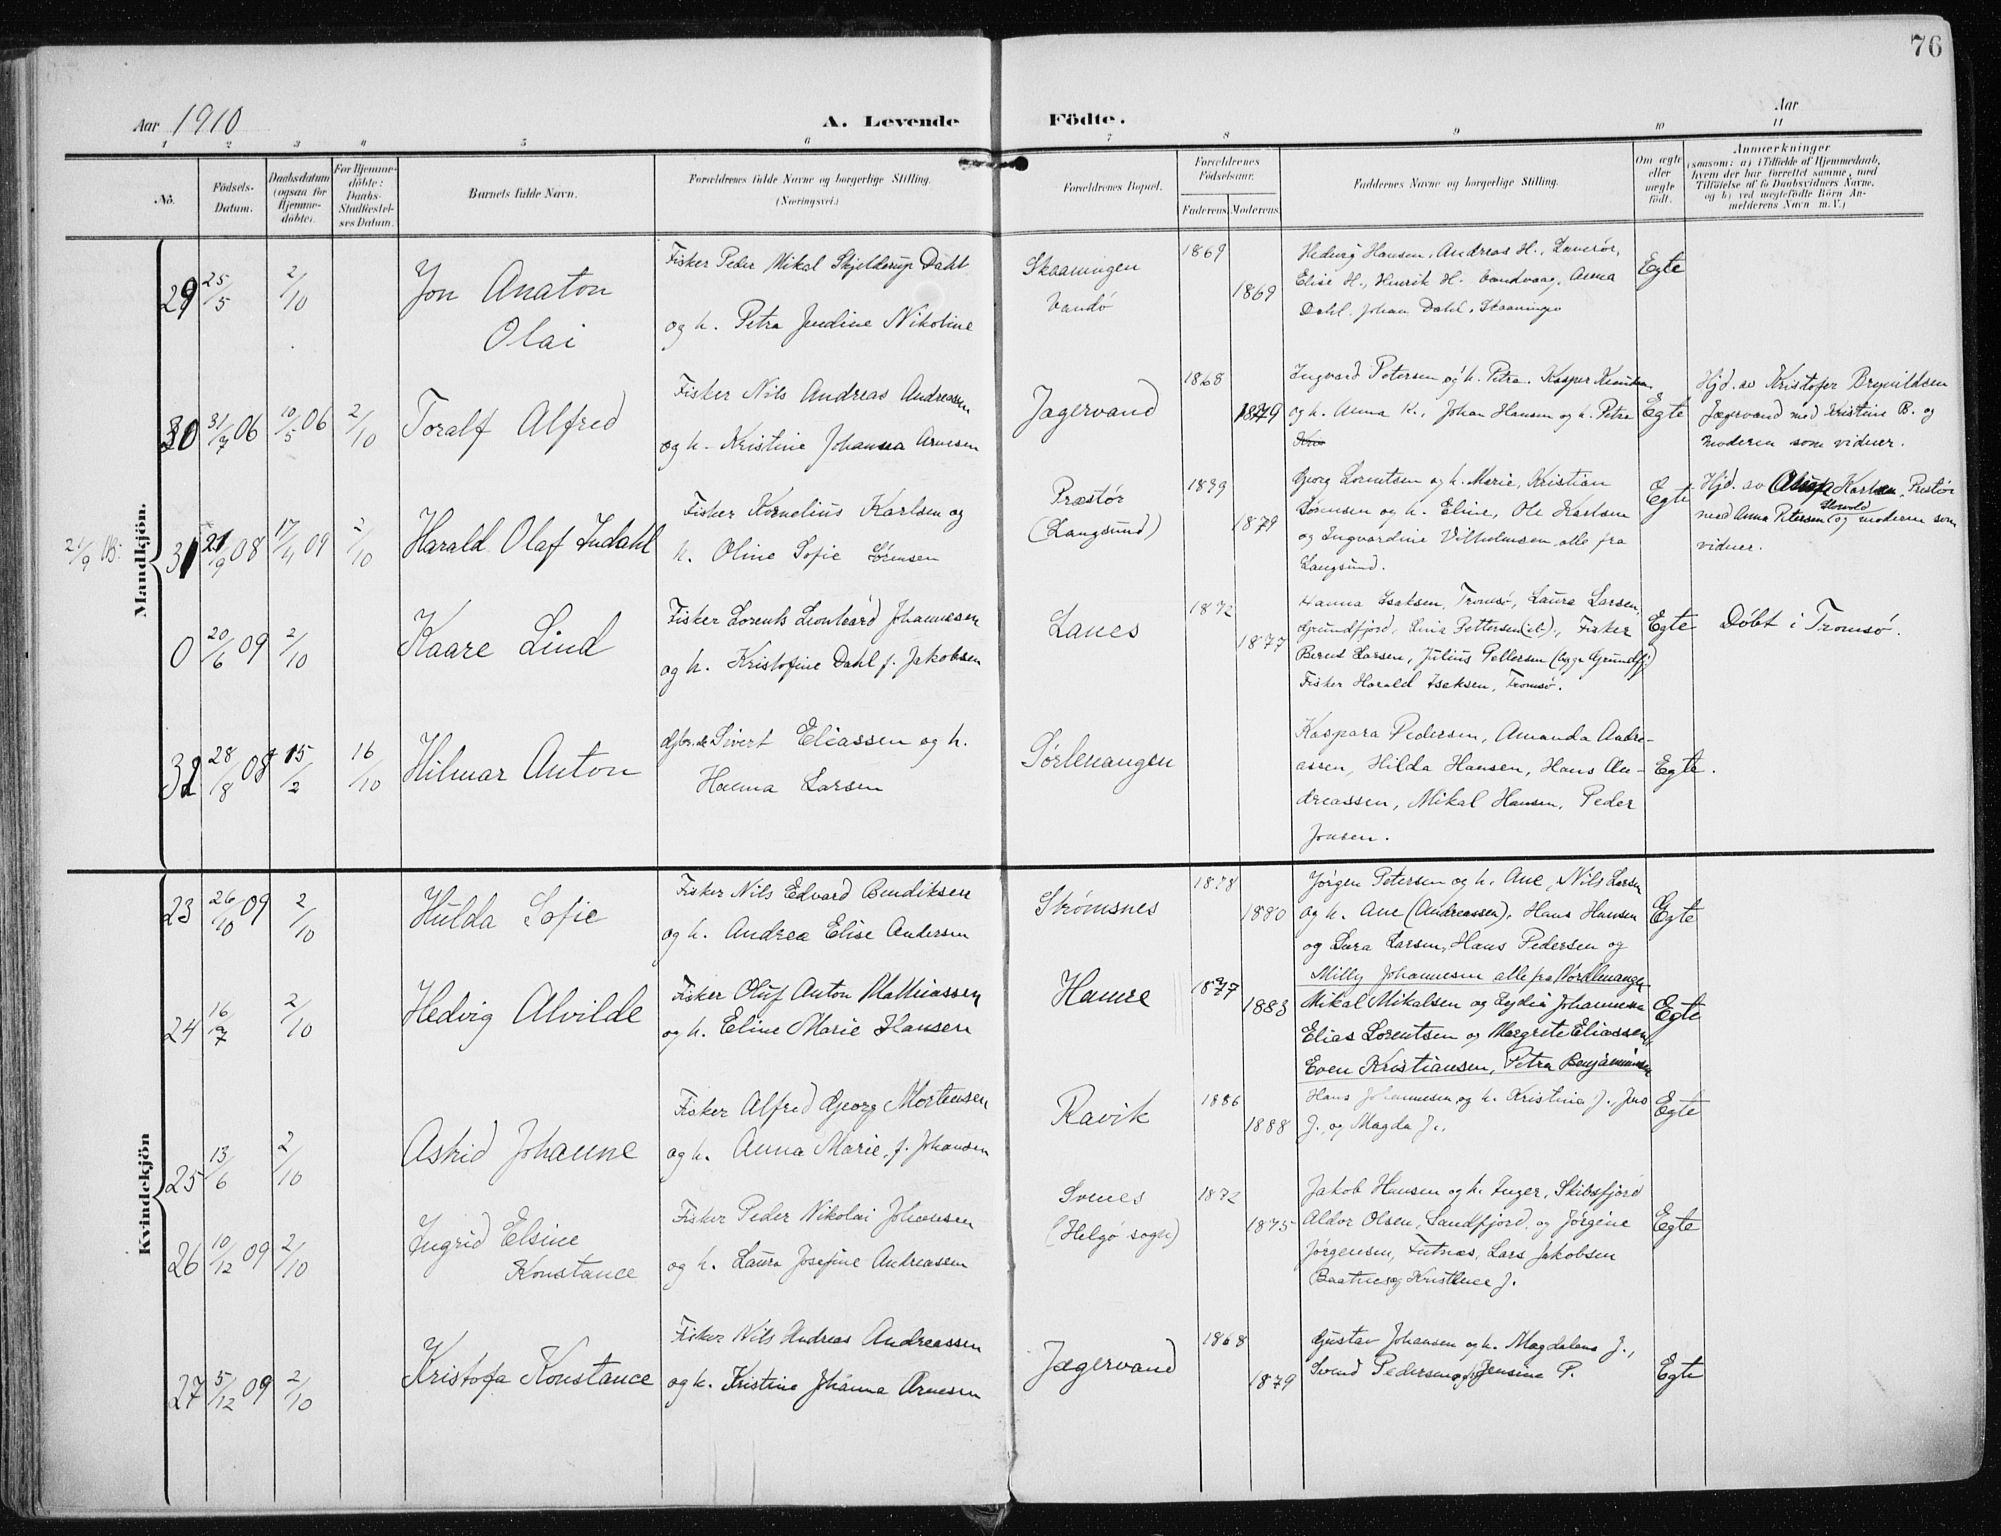 76
Aar 1910
A. Levende Födte.
Aar
1 2 3 4 5 6 7 8 9 10 11
No.
Födsels-Datum.
Daabsdatum (ogsaa for Hjemmedöbte).
For Hjemmedöbte: Daabs-Stadfæstelses Datum.
Barnets fulde Navn.
Forældrenes fulde Navne og borgerlige Stilling.
(Næringsvei.)
Forældrenes Bopæl.
Forældrenes Födselsaar.
Faderens. Moderens.
Faddernes Navne og borgerlige Stilling.
Om ægte eller uægte født.
Anmærkninger
(saasom: a) i Tilfælde af Hjemmedaab, hvem der har forrettet samme, med Tilföielse af to Daabsvidners Navne, og b) ved uægtefödte Börn Anmelderens Navn m. V.)
Mandkjön.
29 25/5 2/10 Jon Anaton
Olai
Fisker Peder Mikal Skjelderup Dahl
og h. Petra Jendine Nikoline
Skaaningen
Vandö
1869
1869
Hedvig Hansen, Andreas H.,
Elise H., Henrik H. Vandvaag, Anna
Dahl. Johan Dahl, Skaaningen
Egte
30 31/7 06 10/5 06 2/10 Toralf Alfred
Fisker Nils Andreas Andreassen
og h. Kristine Johanna Arnesen
Jægervand
1868
1879
Ingvard Petersen og h. Petra. Kasper Knutsen
og h. Anna K., Johan Hansen og h. Petra
Egte
Hjd. av Kristofer Brynildsen
Jægervand med Kristine B. og
moderen som vidner.
21/9
31 21/9 08 17/4 09 2/10 Harald Olaf Indahl
Fisker Kornelius Karlsen og
h. Oline Sofie Sörensen
Præstör
(Langsund)
1879
1879
Georg Lorentsen og h. Marie, Kristian
Sörensen og h. Eline, Ole Karlsen
og Ingvardine Vilhelmsen alle fra
Langsund.
Egte
Hjd. av Karlsen, Prestör
med Anna Petersen og moderen som
vidner.
0 20/6 09 2/10 Kaare Lind
Fisker Lorents Leonhard Johannesen
og h. Kristofine Dahl f. Jakobsen
Lanes
1872
1877
Hanna Isaksen, Tromsö, Laura Larsen,
Grundfjord, Lina Pettersen, Fisker
Bernt Larsen, Julius Pettersen (bygr. Grundfj)
Fisker Harald Isaksen, Tromsö.
Egte
Döbt i Tromsö.
32 28/8 08 15/2 16/10 Hilmar Anton
Gbr. Sivert Eliassen og h.
Hanna Larsen
Sörlenangen
Kaspara Pedersen, Amanda Andre-
assen, Hilda Hansen, Hans An-
dreassen, Mikal Hansen, Peder
Jensen.
Egte.
Kvindekjön
23 26/10 09 2/10 Hulda Sofie
Fisker Nils Edvard Bendiksen
og h. Andrea Elise Andersen
Strömsnes
1878
1880
Jörgen Petersen og h. Ane, Nils Larsen
og h. Ane (Andreassen), Hans Hansen
og Sara Larsen, Hans Pedersen og
Milly Johannesen alle fra Nordlenangen
Egte
24 16/7 2/10 Hedvig Alvilde
Fisker Oluf Anton Mathiassen
og h. Eline Marie Hansen
Hamre
1877
1883
Mikal Mikalsen og Lydia Johannesen
Elias Lorentsen og Margrete Eliassen,
Even Kristiansen, Petra Benjaminsen
Egte
25 13/6 2/10 Astrid Johanne
Fisker Alfred Georg Mortensen
og h. Anna Marie, f. Johansen
Ravik
1886
1888
Hans Johannesen og h. Kristine J., Jens
J., og Magda J.
Egte
26 10/12 09 2/10 Ingrid Elsine
Konstance
Fisker Peder Nikolai Johansen
og h. Laura Josefine Andreassen
Svenes
(Helgø sogn)
1872
1875
Jakob Hansen og h. Inger, Skibsfjord
Aldor Olsen, Sandfjord, og Jörgine
Jörgensen, Futnæs, Lars Jakobsen
Baatnes og Kristine J.
Egte
27 5/12 09 2/10 Kristofa Konstance
Fisker Nils Andreas Andreassen
og h. Kristine Johanna Arnesen
Jægervand
1868
1879
Gustav Johansen og h. Magdalena J.,
Svend Pedersen og h. Jensine P.
Egte